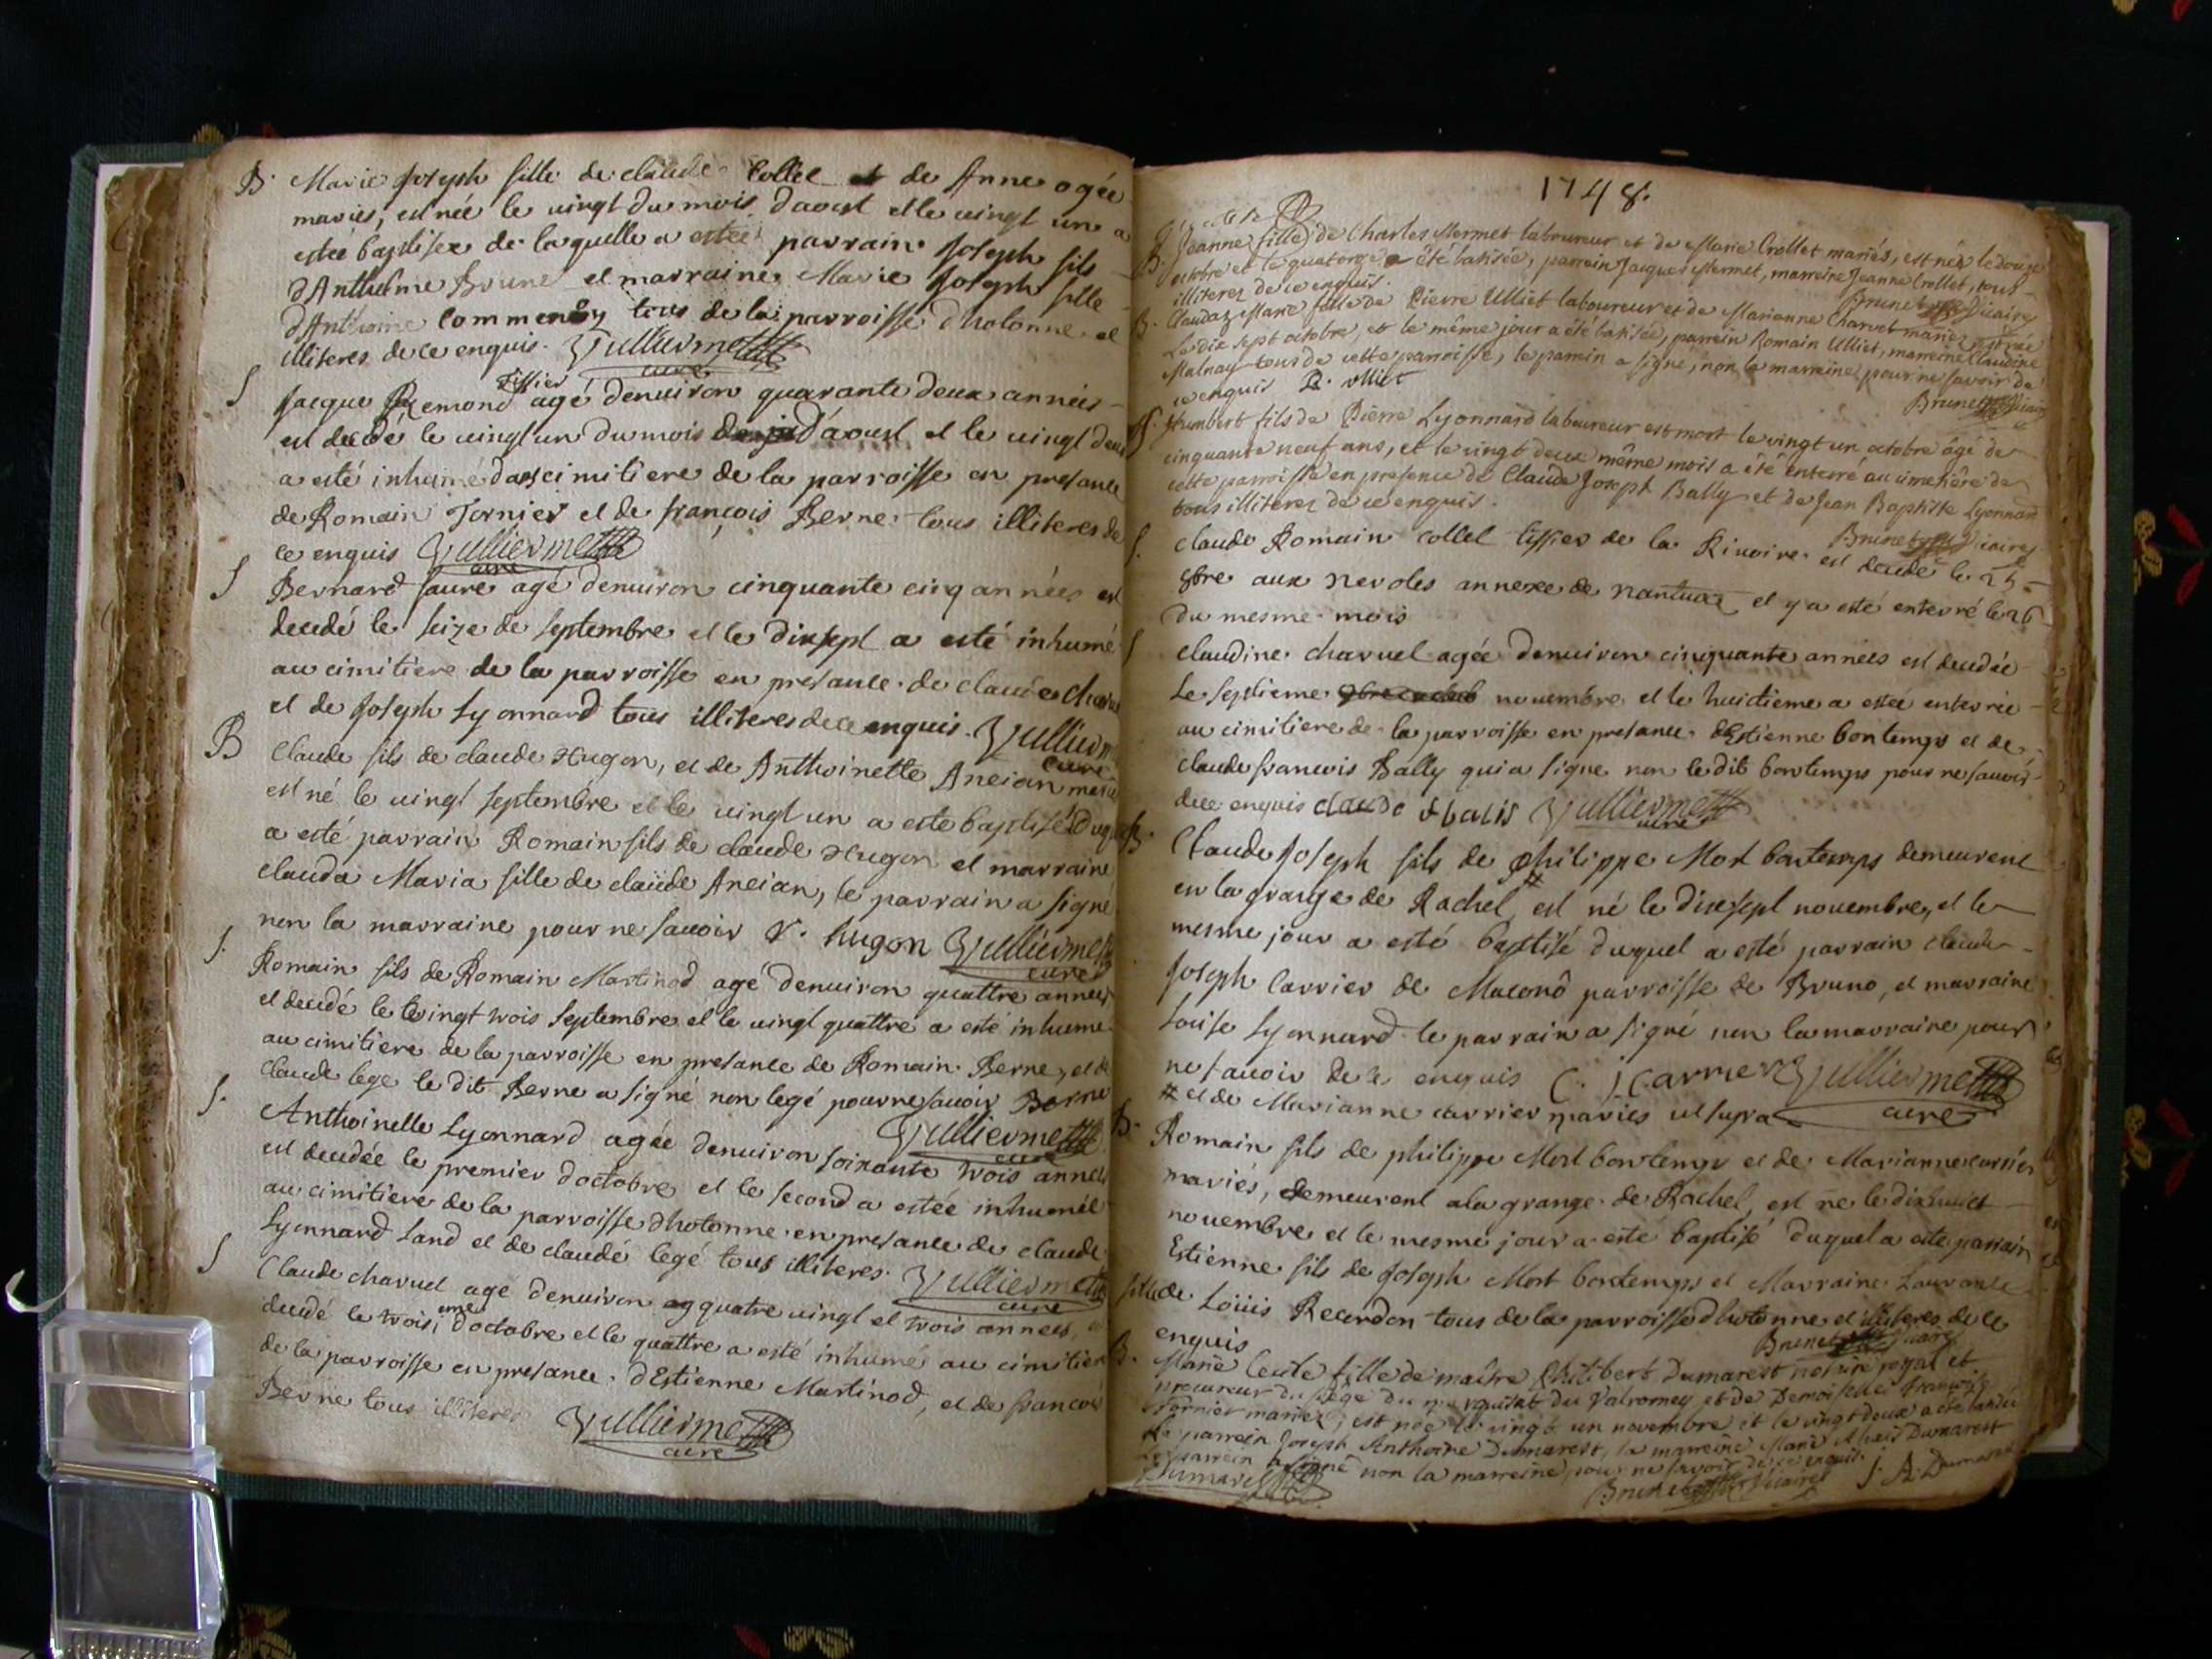 B. Marie Joseph fille de claude Collet et de Anne ogée
mariés, est née le vingt du mois daoust et le vingt un a
estée baptisée de laquelle a estée parrain Joseph fils
dAnthelme Brune et marraine Marie Joseph fille
dAnthoine Commency tous de la parroisse dhotonne et
illiteres de ce enquis. Vulliermet curé
S Jacque Remond tissier agé denuiron quarante deux années
est decedé le vingt un du mois d'aoust et le vingt deux
a esté inhumé dans cimitiere de la parroisse en presance
de Romain Tornier et de françois Berne tous illiteres de
ce enquis Vulliermet curé
S Bernard faure agé denuiron cinquante cinq années est
decedé le seize de septembre et le dixsept a esté inhumé
au cimitiere de la parroisse en presance de claude
et de Joseph Lyonnard tous illiteres de ce enquis. Vullierm
curé
B Claude fils de claude Hugon, et de Anthoinette Ancian
est né le vingt septembre et le vingt un a esté baptisé
a esté parrain Romain fils de claude Hugon et marraine
clauda Maria fille de claude Ancian, le parrain a signé
non la marraine pour ne sauoir r. hugon Vulliermet
curé
S. Romain fils de Romain Martinod agé denuiron quattre années
et decedé le vingt trois septembre et le vingt quattre a esté inhumé
au cimitiere de la parroisse en presance de Romain Berne, et de
claude legé le dit Berne a signé non legé pour ne sauoir Berne
Vulliermet
curé
S. Anthoinette Lyonnard agée denuiron soixante trois années
est decedée le premier doctobre et le second a estée inhumée
au cimitiere de la parroisse dhotonne en presance de claude
Lyonnard Land et de claude legé tous illiteres. Vulliermet
curé
S Claude charuet agé denuiron quatre vingt et trois années,
decedé le troisieme doctobre et le quattre a esté inhumé au cimitiere
de la parroisse en presance dEstienne Martinod, et de françois
Berne tous illiteres Vulliermet
curé
1748.
B. Jeanne fille de Charles Mermet laboureur et de Marie Crollet mariés, est née le douze
octobre et le quatorze a été batisée, parrein Jacques Mermet, marreine Jeanne Crollet, tous
illiterez de ce enquis. Brunet Vicaire
B. Claudaz Marie fille de Pierre Ulliet laboureur et de Marianne Charvet mariez est née
Le dix sept octobre, et le même jour a été batisée, parrein Romain Ulliet, marreine Claudine
Malnay tous de cette parroisse, le parrein a signé, non la marreine pour ne savoir de
ce enquis R. ulliet Brunet Vicaire
S. Humbert fils de Pierre Lyonnard laboureur est mort le vingt un octobre âgé de
cinquante neuf ans, et le vingt deux même mois a été enterré au cimetiére de
cette parroisse en presence de Claude Joseph Bally et de Jean Baptiste Lyonnard
tous illiterez de ce enquis. Brunet Vicaire
S. claude Romain collet tissier de la Riuoire est decedé le 25
8bre aux Neroles annexe de Nantuax et y a esté enterré le 26
du mesme mois
S claudine charuet agée denuiron cinquante années est decedée
Le septieme novembre et le huictieme a estée enterrée
au cimitiere de la parroisse en presance dEstienne bontemps et de
claude francois Bally qui a signé non le dit bontemps pour ne sauoir
de ce enquis claude Vulliermet
curé
B. Claude Joseph fils de philippe Mort bontemps demeurent
en la grange de Rachel # est né le dixsept novembre, et le
mesme jour a esté baptisé duquel a esté parrain claude
Joseph Carrier de Maconô parroisse de Bruno, et marraine
Louise Lyonnard le parrain a signé non la marraine pour
ne sauoir de ce enquis C. j carrier Vulliermet
# et de Marianne carrier mariés ut supra curé
B. Romain fils de philippe Mort bontemps et de Marianne carrier
mariés, demeurent a la grange de Rachel, est né le dixhuict
nouembre et le mesme jour a esté baptisé duquel a esté parrain
Estienne fils de Joseph Mort bontemps et Marraine Laurence
fille de Loüis Recordon tous de la parroisse dhotonne et illiteres de ce
enquis Brunet Vicaire
B. Marie Cecile fille de maître Philibert Dumarest notaire royal et
procureur du siége du marquisat du Valromey et de Demoiselle Françoise
Tornier mariez, est née le vingt un novembre et le vingt deux a été
Le parrein Joseph Anthoine Dumarest, la marreine Marie Dumarest
Le parrein a signé non la marreine pour ne savoir de ce enquis.
Dumarest Brunet Vicaire J. A. Dumarest